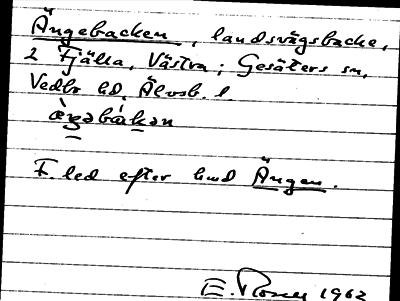 Ängebacken, landsvägsbacke,
2 Fjälla, Västra; Gesäters sn,
Vedbo hd, Älvsb. l.
F. led efter lund Ängen.
E. Rosell 1962